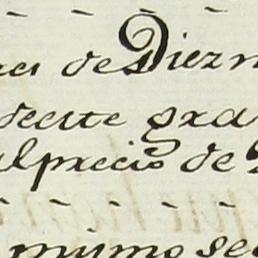 de Diezm
deeste gra
al precio de
mismo se